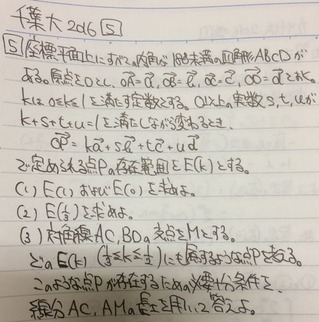 千葉大2016 5
5 座標平面上にすべての内角が180°未満の四角形ABCDが
ある。原点をOとし、OA=a, OB=b, OC=c, OD=dとおく。
kは0≤k≤1を満たす定数とする。0以上の実数s,t,uが
k+s+t+u=1を満たしながら変わるとき、
OP=ka+sb+tc+ud
で定められる点Pの存在範囲をE(k)とする。
(1) E(1)およびE(0)を求めよ。
(2) E(1/3)を求めよ。
(3) 対角線AC, BDの交点をMとする。
どのE(k) (1/3≤k≤1/2)にも属するような点Pを考える。
このような点Pが存在するための必要十分条件を、
線分AC, AMの長さを用いて答えよ。